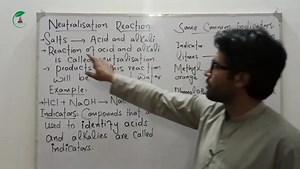 Neutralisation Reaction
Salts → Acid and alkali
→ Reaction of acid and alkali
is called neutralisation
→ Products this reaction
will be water
Example:
→ HCl + NaOH → Na
Indicators: Compounds that are
used to identify acids
and alkalies are called
indicators.
Some Common indicators
Indicator
litmus
Methyl
orange